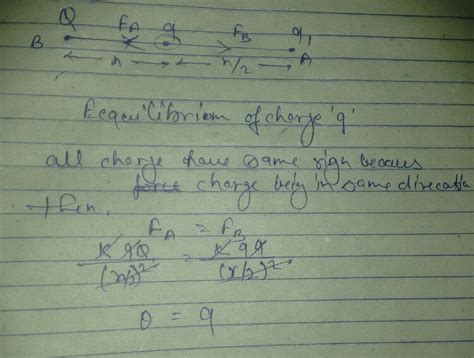 Q FA q FB q1
B A
x x/2
Eequilibriom of charge 'q'
all charge have same sign becaus
charge being in same direcation
then,
FA = FB
K qQ / (x/2)² = K q q / (x/2)²
Q = q